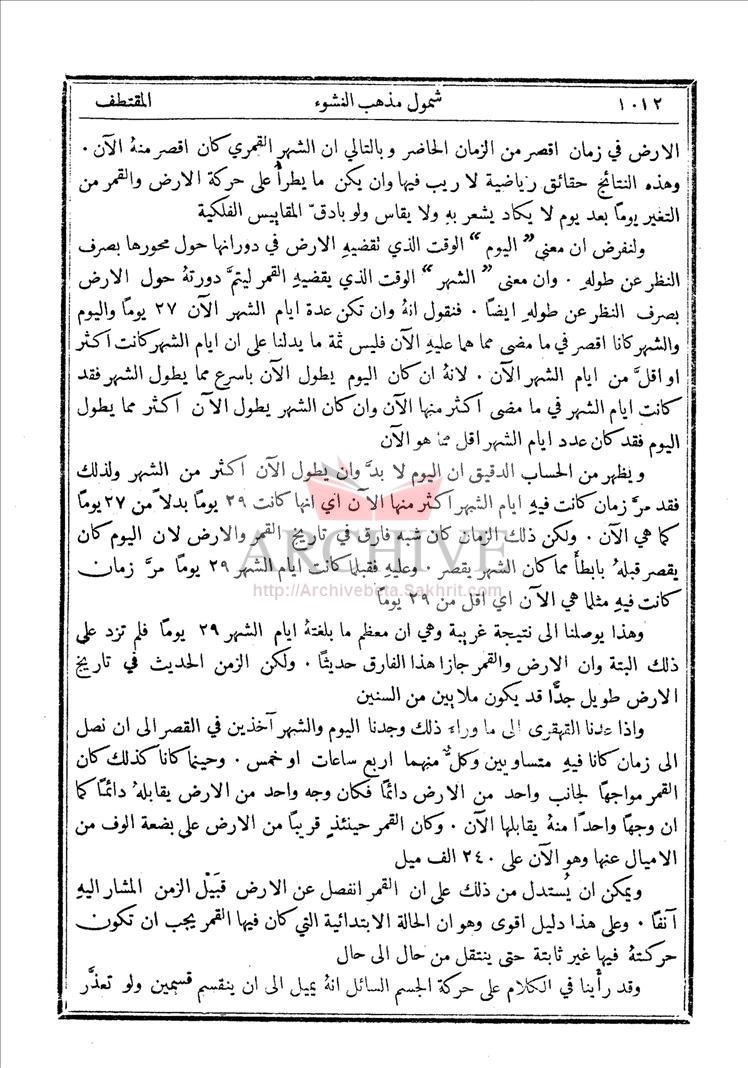 ١٠١٢ شمول مذهب النشوء المقتطف
الارض في زمان اقصر من الزمان الحاضر وبالتالي ان الشهر القمري كان اقصر منهُ الآن .
وهذه النتائج حقائق رياضية لا ريب فيها وان يكن ما يطرأُ على حركة الارض والقمر من
التغير يوماً بعد يوم لا يكاد يشعر بهِ ولا يقاس ولو بادقّ المقاييس الفلكية
ولنفرض ان معنى ”اليوم“ الوقت الذي تقضيهِ الارض في دورانها حول محورها بصرف
النظر عن طولهِ . وان معنى ”الشهر“ الوقت الذي يقضيهِ القمر ليتمَّ دورتهُ حول الارض
بصرف النظر عن طولهِ ايضاً . فنقول انهُ وان تكن عدة ايام الشهر الآن ٢٧ يوماً واليوم
والشهر كانا اقصر في ما مضى مما هما عليهِ الآن فليس ثمة ما يدلنا على ان ايام الشهر كانت اكثر
او اقلَّ من ايام الشهر الآن . لانهُ ان كان اليوم يطول الآن باسرع مما يطول الشهر فقد
كانت ايام الشهر في ما مضى اكثر منها الآن وان كان الشهر يطول الآن اكثر مما يطول
اليوم فقد كان عدد ايام الشهر اقل مما هو الآن
ويظهر من الحساب الدقيق ان اليوم لا بدَّ وان يطول الآن اكثر من الشهر ولذلك
فقد مرَّ زمان كانت فيهِ ايام الشهر اكثر منها الآن اي انها كانت ٢٩ يوماً بدلاً من ٢٧ يوماً
كما هي الآن . ولكن ذلك الزمان كان شبه فارق في تاريخ القمر والارض لان اليوم كان
يقصر قبلهُ بابطأَ مما كان الشهر يقصر . وعليهِ فقبلما كانت ايام الشهر ٢٩ يوماً مرَّ زمان
كانت فيهِ مثلما هي الآن اي اقل من ٢٩ يوماً
وهذا يوصلنا الى نتيجة غريبة وهي ان معظم ما بلغتهُ ايام الشهر ٢٩ يوماً فلم تزد على
ذلك البتة وان الارض والقمر جازا هذا الفارق حديثاً . ولكن الزمن الحديث في تاريخ
الارض طويل جدًّا قد يكون ملايين من السنين
واذا عدنا القهقرى الى ما وراء ذلك وجدنا اليوم والشهر آخذين في القصر الى ان نصل
الى زمان كانا فيهِ متساويين وكلٌّ منهما اربع ساعات او خمس . وحينما كانا كذلك كان
القمر مواجهاً لجانب واحد من الارض دائماً فكان وجه واحد من الارض يقابلهُ دائماً كما
ان وجهاً واحداً منهُ يقابلها الآن . وكان القمر حينئذٍ قريباً من الارض على بضعة الوف من
الاميال عنها وهو الآن على ٢٤٠ الف ميل
ويمكن ان يُستدل من ذلك على ان القمر انفصل عن الارض قبَيْل الزمن المشار اليهِ
آنفاً . وعلى هذا دليل اقوى وهو ان الحالة الابتدائية التي كان فيها القمر يجب ان تكون
حركتهُ فيها غير ثابتة حتى ينتقل من حال الى حال
وقد رأينا في الكلام على حركة الجسم السائل انهُ يميل الى ان ينقسم قسمين ولو تعذَّر
ARCHIVE
http://Archivebeta.Sakhrit.com